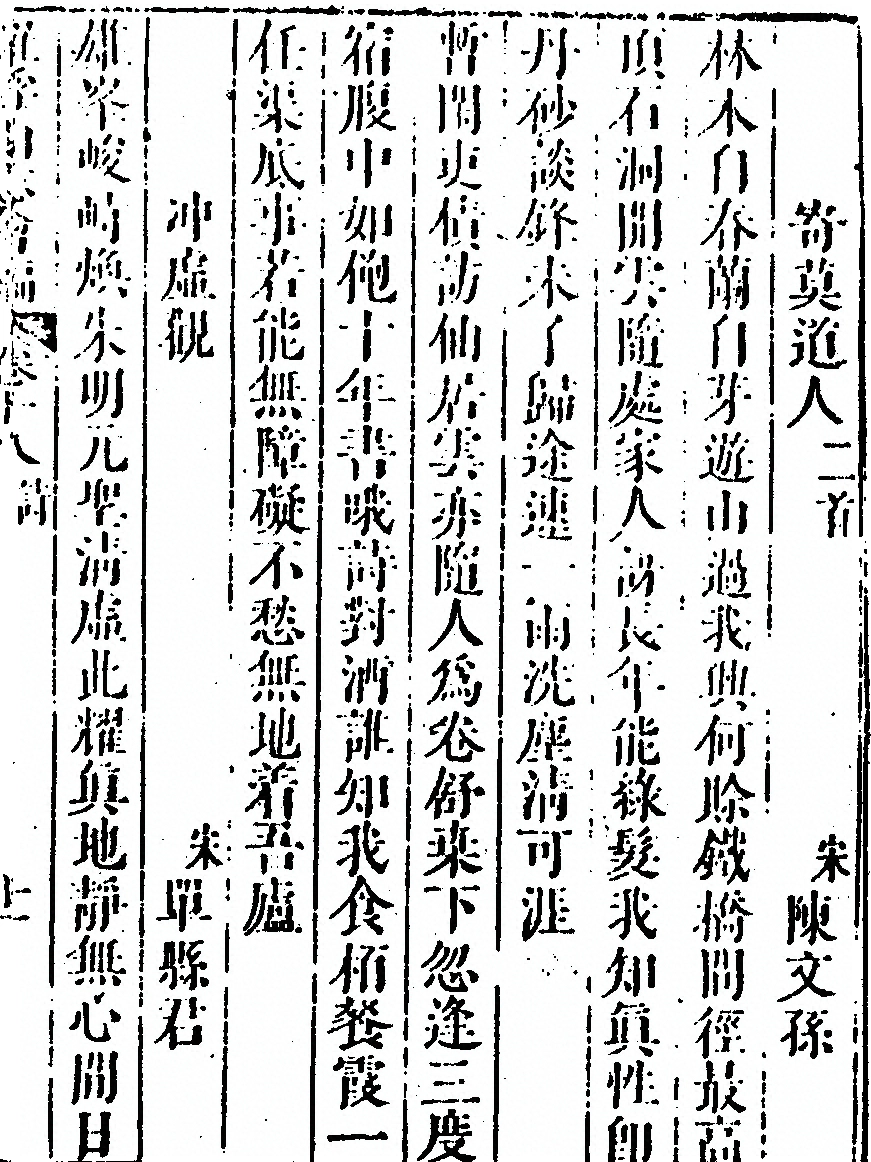 寄莫道人 二首 宋 陳文孫
林木自春蘭自芽遊山過我興何賒鐵橋間徑最高
頂石洞開雲隨處家人訝長年能綠髮我知眞性卽
丹砂談鋒未了歸途速一雨洗塵淸可涯
暫閒吏債訪仙居雲亦隨人爲卷舒來下忽逢三度
宿腹中如飽十年書哦詩對酒誰知我食栢餐霞一
任渠底事若能無障礙不愁無地着吾廬
冲虛觀 宋 單縣君
雄峯峻峙煥朱明元聖淸虛此耀眞地靜無心間日
卷十八 詩 上